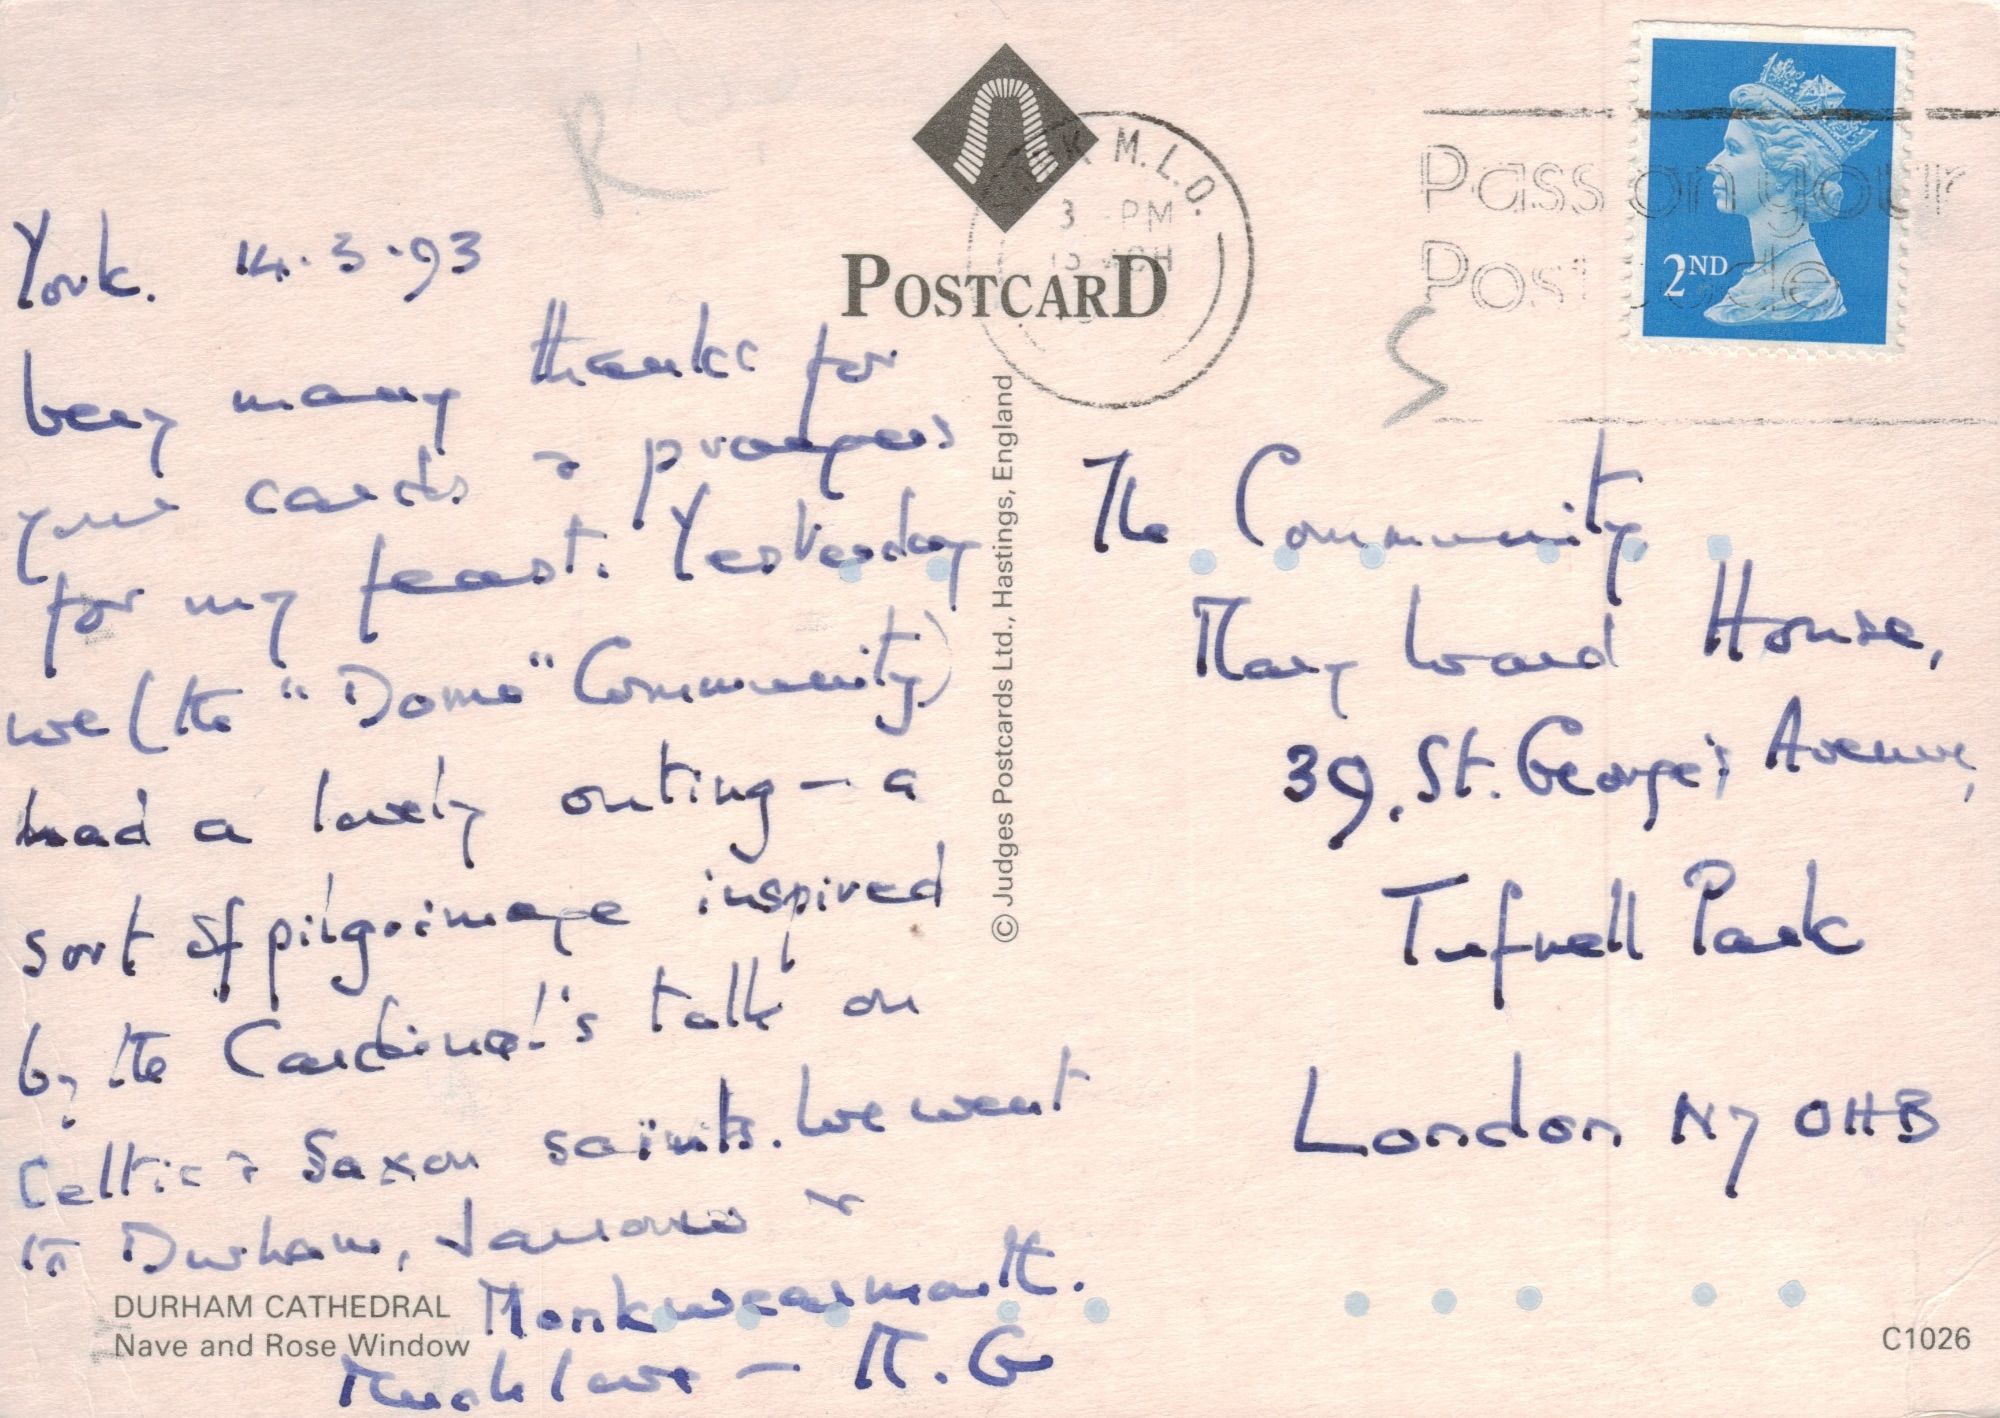 York. 14.3.93
Very many thanks for
your cards & prayers
for my feast. Yesterday
we (the "Domo" Community)
had a lovely outing – a
sort of pilgrimage inspired
by the Cardinal's talk on
Celtic & Saxon saints. We went
to Durham, Jarrow &
Monkwearmouth.
Much love – M. G
POSTCARD
© Judges Postcards Ltd., Hastings, England
DURHAM CATHEDRAL
Nave and Rose Window
M.L.O.
3 PM
Pass on your
Postcode
2ND
The Community,
Mary Ward House,
39, St. George's Avenue,
Tufnell Park
London N7 0HB
C1026
R
S